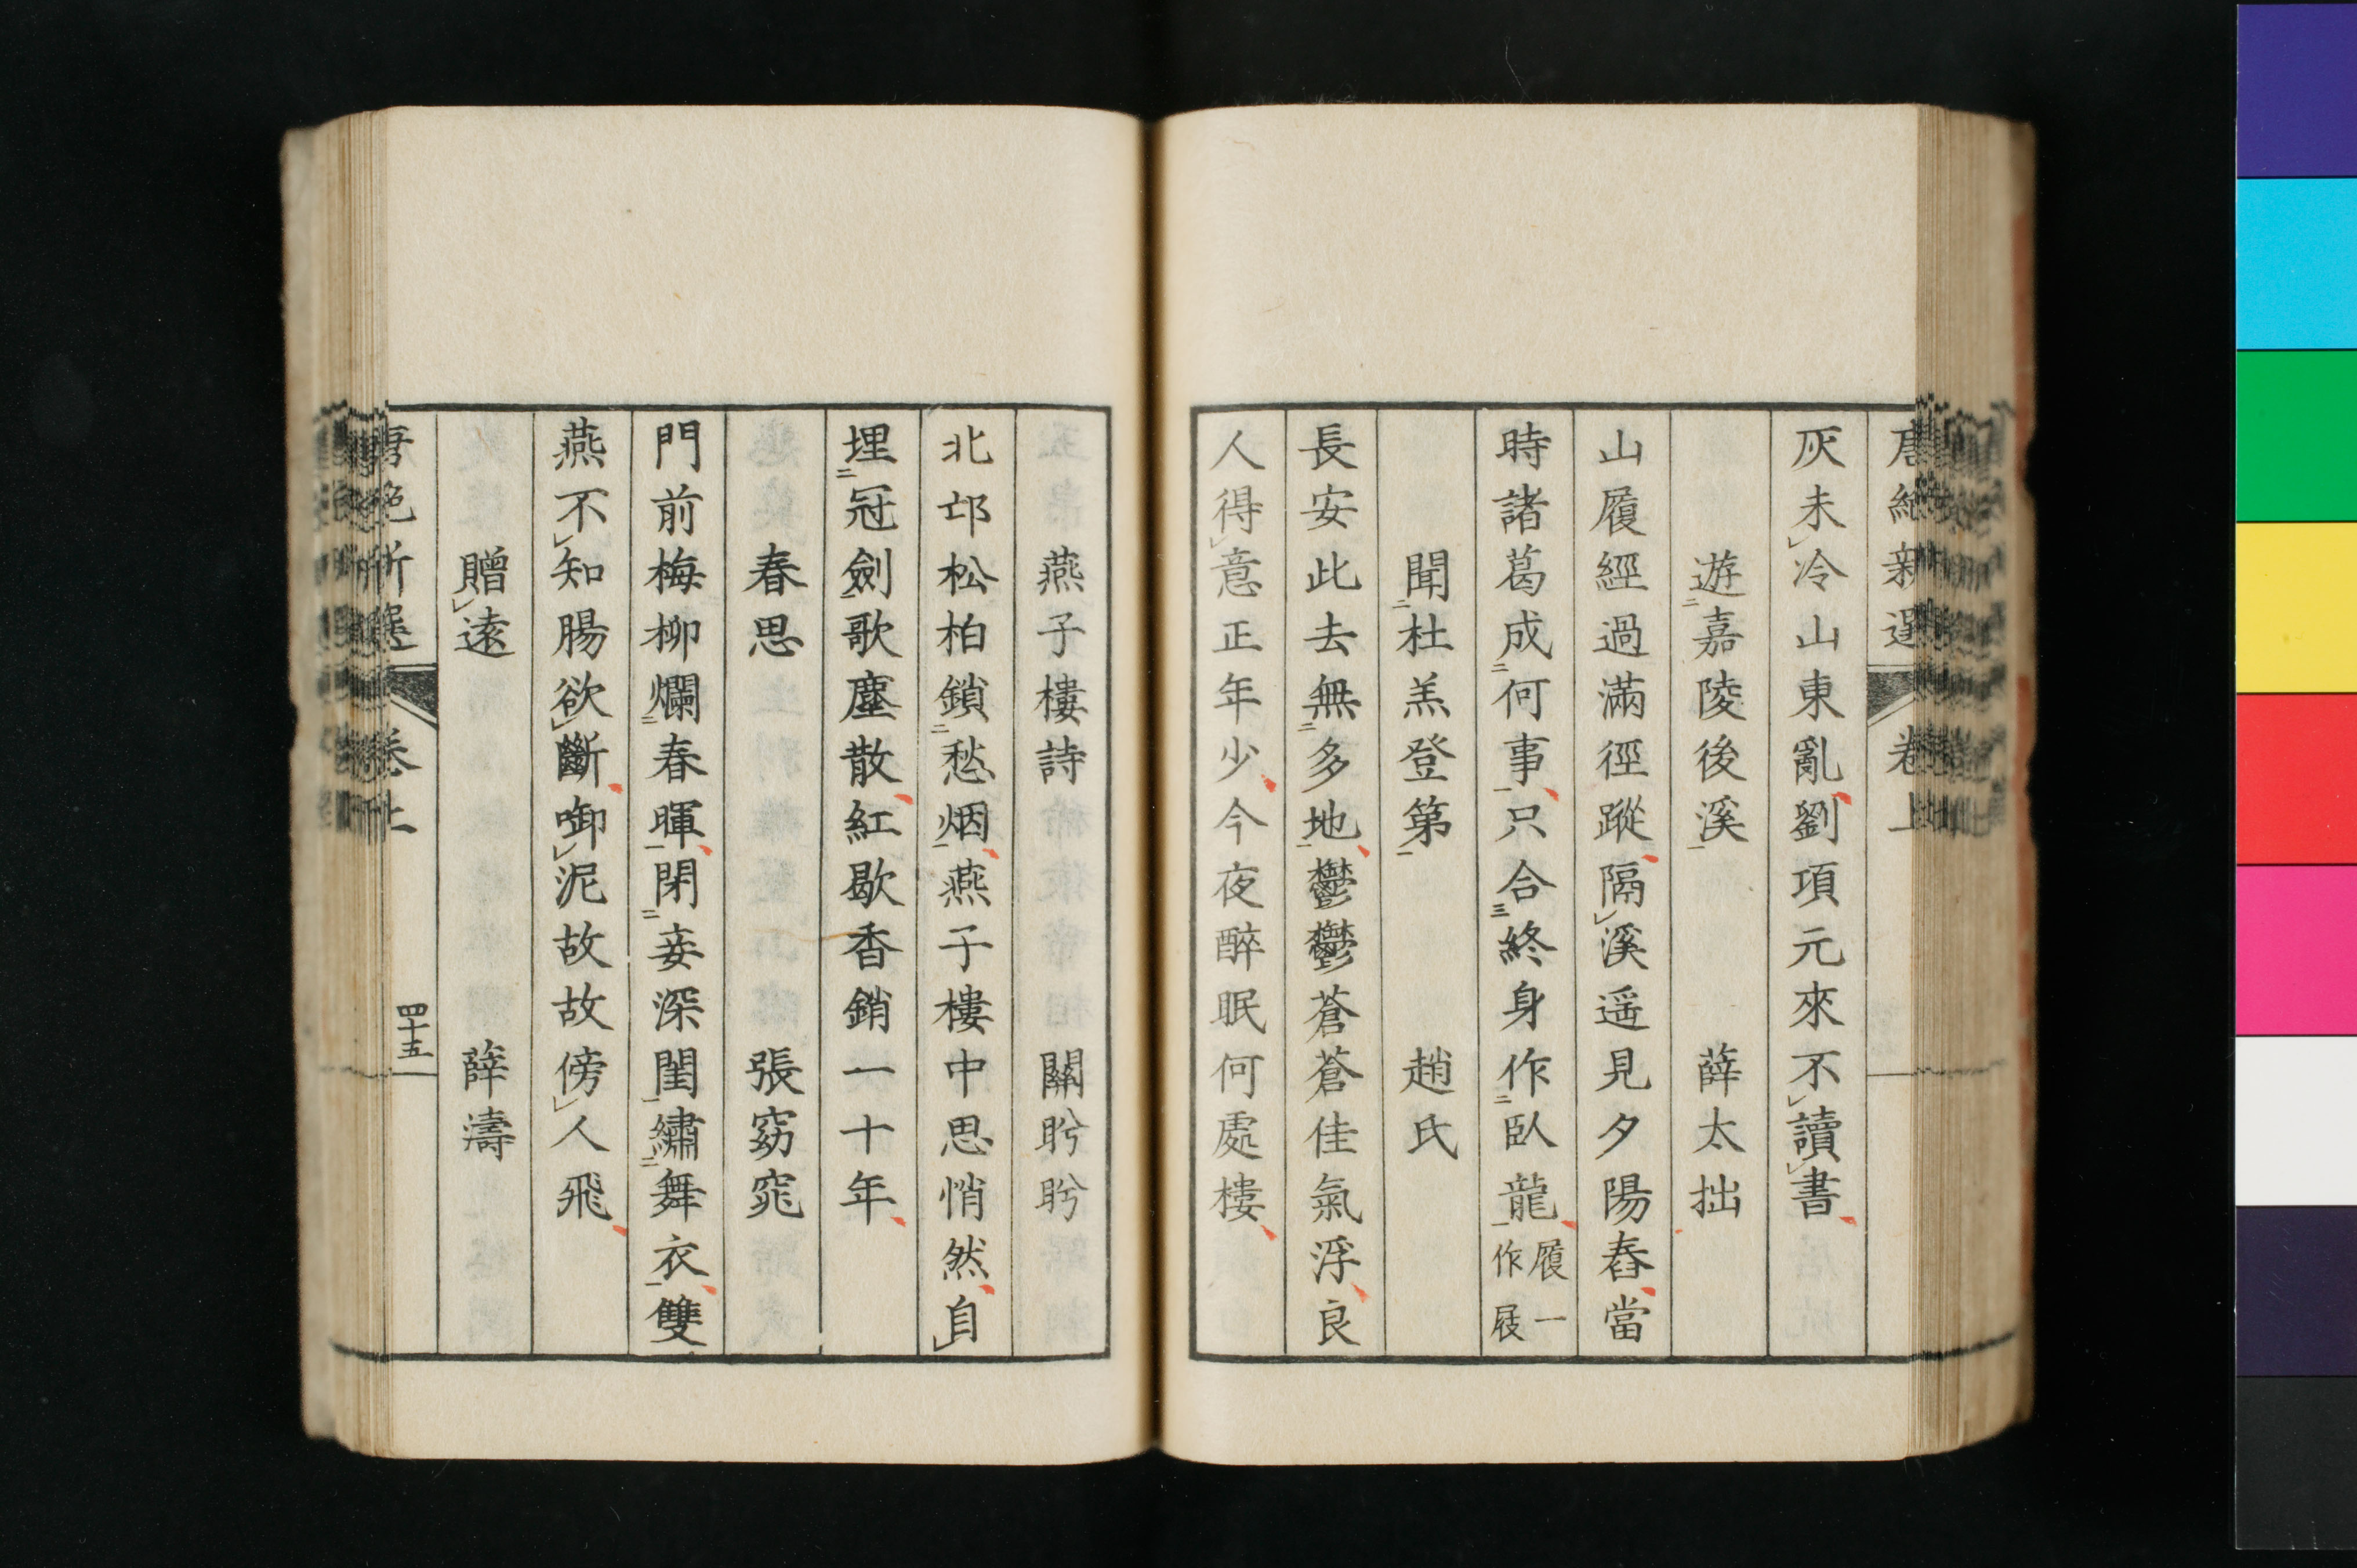 唐絶新選 卷上
灰未冷山東亂劉項元來不讀書
遊嘉陵後溪 薛太拙
山履經過滿徑蹤隔溪遥見夕陽舂當
時諸葛成何事只合終身作臥龍履一作屐
聞杜羔登第 趙氏
長安此去無多地鬱鬱蒼蒼佳氣浮良
人得意正年少今夜醉眠何處樓
燕子樓詩 關盼盼
北邙松柏鎖愁烟燕子樓中思悄然自
埋冠劍歌塵散紅歇香銷一十年
春思 張窈窕
門前梅柳爛春暉閉妾深閨繡舞衣雙
燕不知腸欲斷啣泥故故傍人飛
贈遠 薛濤
唐絶新選 卷上 四十五